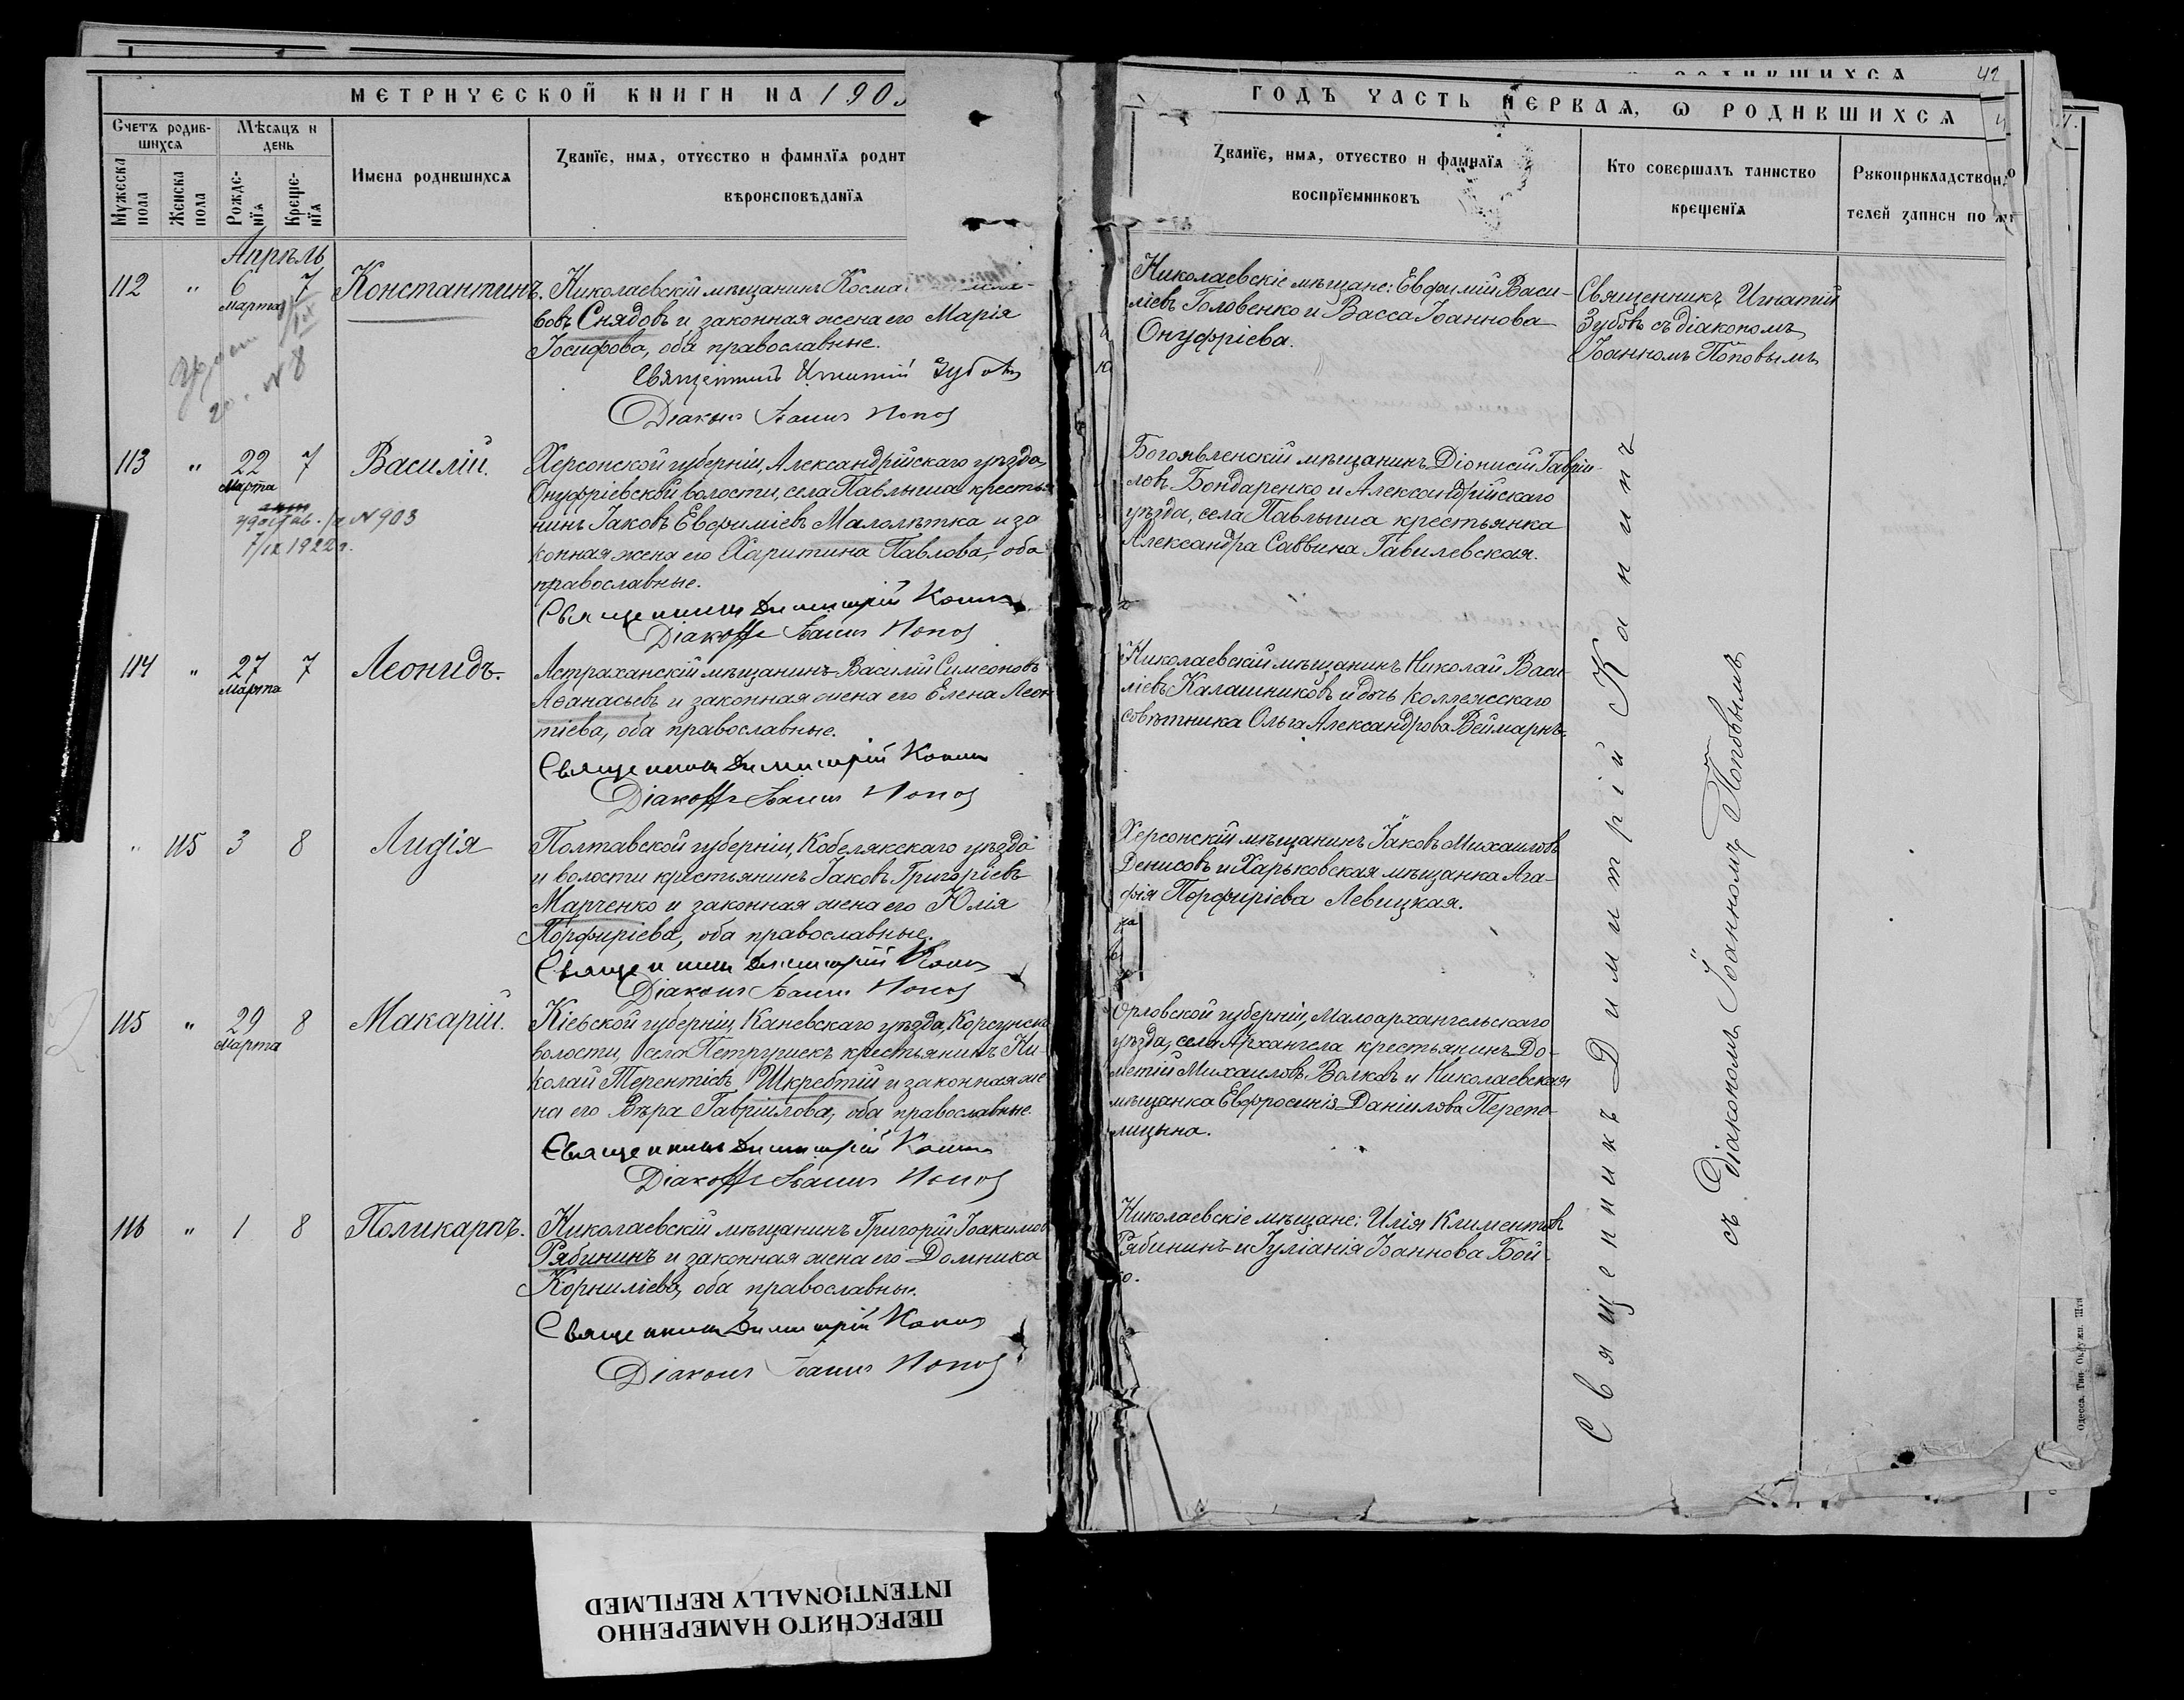 МЕТРИЧЕСКОЙ КНИГИ НА 190
Счетъ родив-
шихся
Мѣсяцъ и
день
Мужеска
пола
Женска
пола
Рожде-
нія
Креще-
нія
Имена родившихся
Званїе, имя, отчество и фамилїя родит
вѣроисповѣданїя
Апрѣль
112 " 6 7 Константинъ. Николаевскій мѣщанинъ Косма
Марта
вовъ Снядовъ и законная жена его Марія
Іосифова, оба православные.
№ 8
Священникъ Игнатій Зубовъ
Діаконъ Іоаннъ Попов
113 " 22 7 Василій. Херсонской губерніи, Александрійскаго уѣзда,
Марта
Онуфріевской волости, села Павлыша крестья
нинъ Іаковъ Евфиміевъ Малолѣтка и за
№ 903
7/IX 1922 г.
конная жена его Харитина Павлова, оба
православные.
Священникъ Димитрій Канин
Діаконъ Іоаннъ Попов
114 " 27 7 Леонидъ. Астраханскій мѣщанинъ Василій Симеоновъ
Марта
Аѳанасьевъ и законная жена его Елена Леон
тіева, оба православные.
Священникъ Димитрій Канин
Діаконъ Іоаннъ Попов
" 115 3 8 Лидія Полтавской губерніи, Кобелякскаго уѣзда
и волости крестьянинъ Іаковъ Григоріевъ
Марченко и законная жена его Юлія
Порфиріева, оба православные.
Священникъ Димитрій Канин
Діаконъ Іоаннъ Попов
115 " 29 8 Макарій. Кіевской губерніи, Каневскаго уѣзда, Корсунск
Марта
волости, села Петрушекъ крестьянинъ Ни-
колай Терентіевъ Шкребтій и законная же
на его Вѣра Гавріилова, оба православные
Священникъ Димитрій Канин
Діаконъ Іоаннъ Попов
116 " 1 8 Поликарпъ. Николаевскій мѣщанинъ Григорій Іоакимов
Рябининъ и законная жена его Домника
Корниліева, оба православны.
Священникъ Димитрій Канин
Діаконъ Іоаннъ Попов
42
ГОДЪ ЧАСТЬ ПЕРВАЯ, Ѡ РОДИВШИХСЯ
Званїе, имя, отчество и фамилїя
воспрїемниковъ
Кто совершалъ таинство
крещенїя
Рукоприкладство
телей записи по
Николаевскіе мѣщане: Евфимій Васи-
ліевъ Головенко и Васса Іоаннова
Онуфріева.
Священникъ Игнатій
Зубовъ съ діакономъ
Іоанномъ Поповымъ
Богоявленскій мѣщанинъ Діонисій Гавріи-
ловъ Бондаренко и Александрійскаго
уѣзда, села Павлыша крестьянка
Александра Саввина Гавилевская.
Николаевскій мѣщанинъ Николай Васи-
ліевъ Калашниковъ и дочь коллежскаго
совѣтника Ольга Александрова Веймарнъ.
Херсонскій мѣщанинъ Іаковъ Михаиловъ
Денисовъ и Харьковская мѣщанка Ага-
фія Порфиріева Левицкая.
Орловской губерніи, Малоархангельскаго
уѣзда, села Архангела крестьянинъ До-
метій Михаиловъ Волковъ и Николаевская
мѣщанка Евфросинія Даніилова Перепе-
лицына.
Николаевскіе мѣщане: Илія Климентов
Рябининъ и Іуліанія Іоаннова Бой-
ко.
Священникъ Димитрій Канинъ
съ діакономъ Іоанномъ Поповымъ
Одесса. Тип. Окружн. Шта
ПЕРЕСНЯТО НАМЕРЕННО
INTENTIONALLY REFILMED